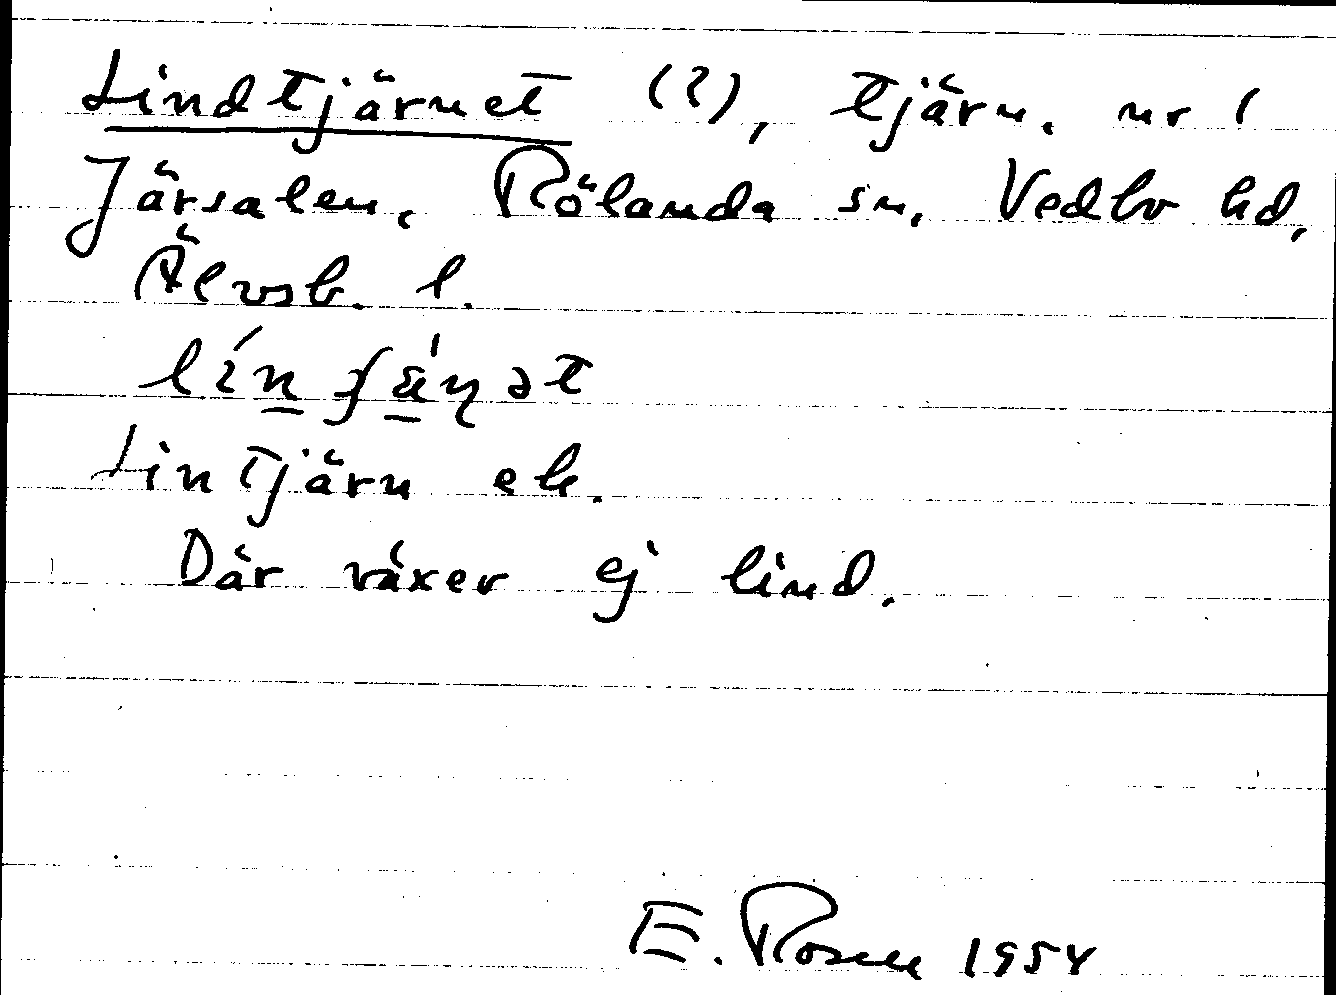 Lindtjärnet (?), tjärn. nr 1
Järsalen, Rölanda sn, Vedbo hd,
Älvsb. l.
Lintjärn ek.
Där växer ej lind.
E. Rosen 1954